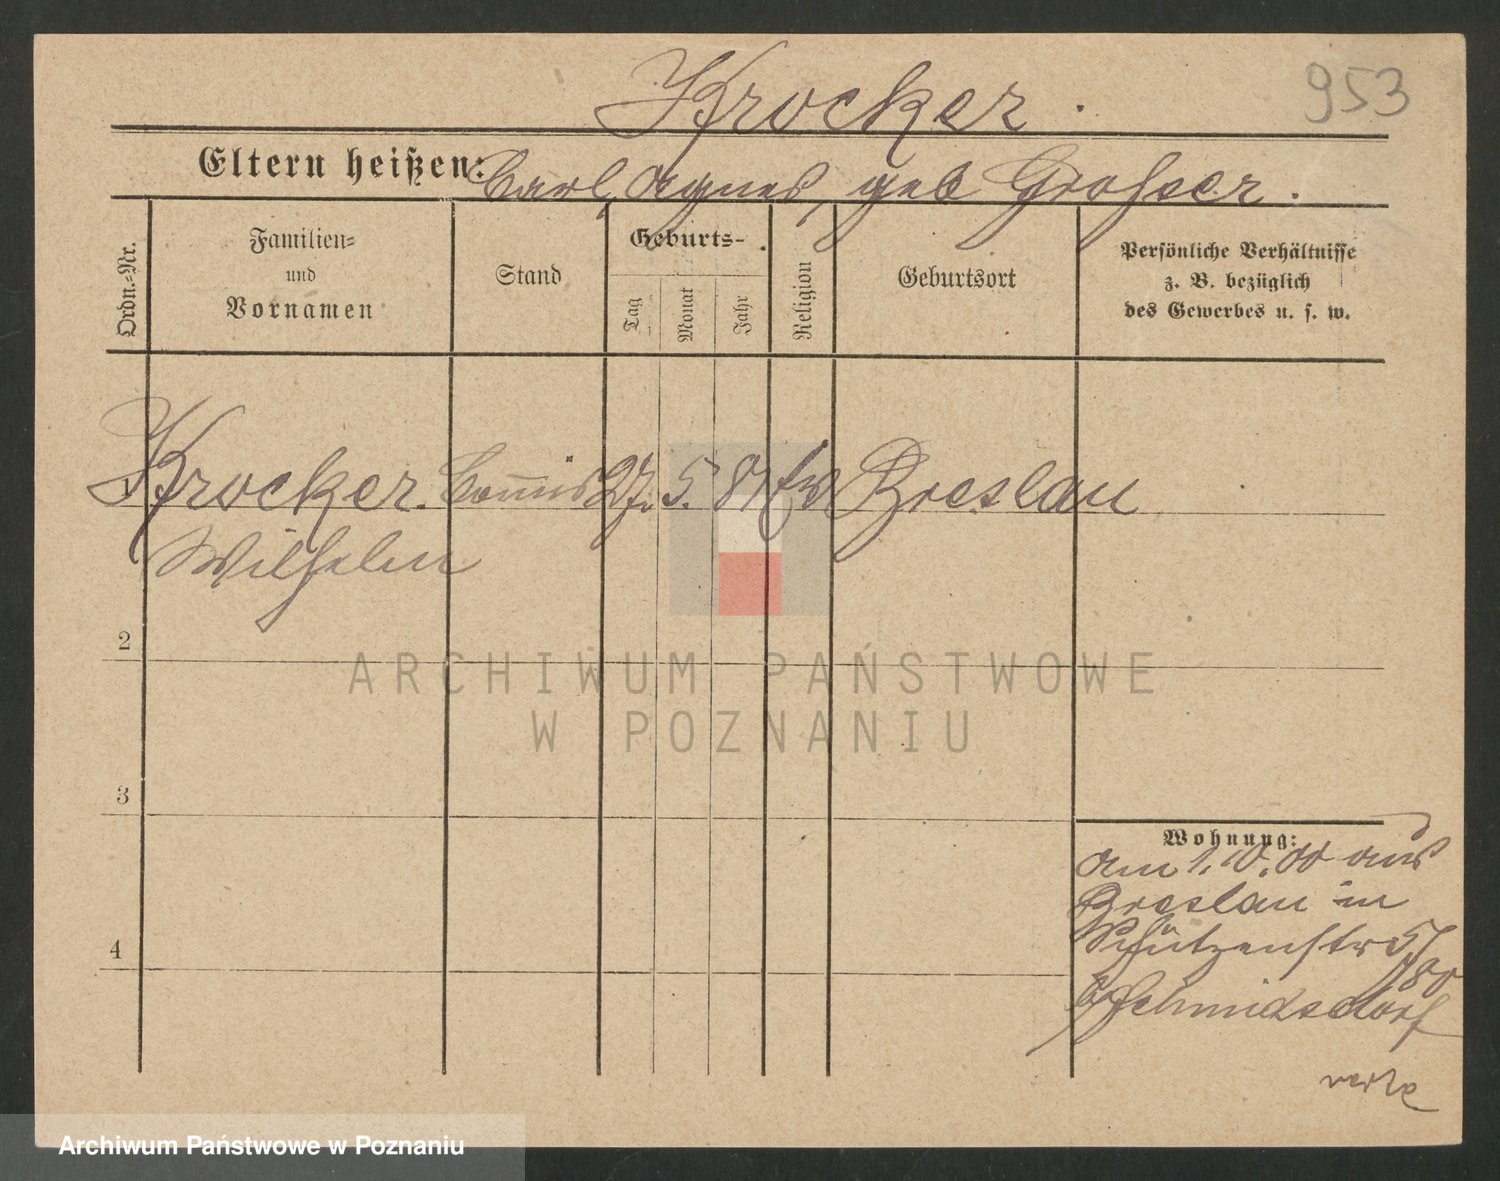 953
Krocker.
Eltern heißen: Carl, Agnes, geb Grosser.
Ordn.-Nr.
Familien=
und
Vornamen
Stand
Geburts-
Tag
Monat
Jahr
Religion
Geburtsort
Persönliche Verhältnisse
z. B. bezüglich
des Gewerbes u. s. w.
Krocker. Commis 27. 5. 81 ev Breslau
Wilhelm
2
3
4
Wohnung:
am 1.10.00 aus
Breslau in
Schützenstr
b/ Schmidsdorf
ARCHIWUM PAŃSTWOWE
W POZNANIU
Archiwum Państwowe w Poznaniu